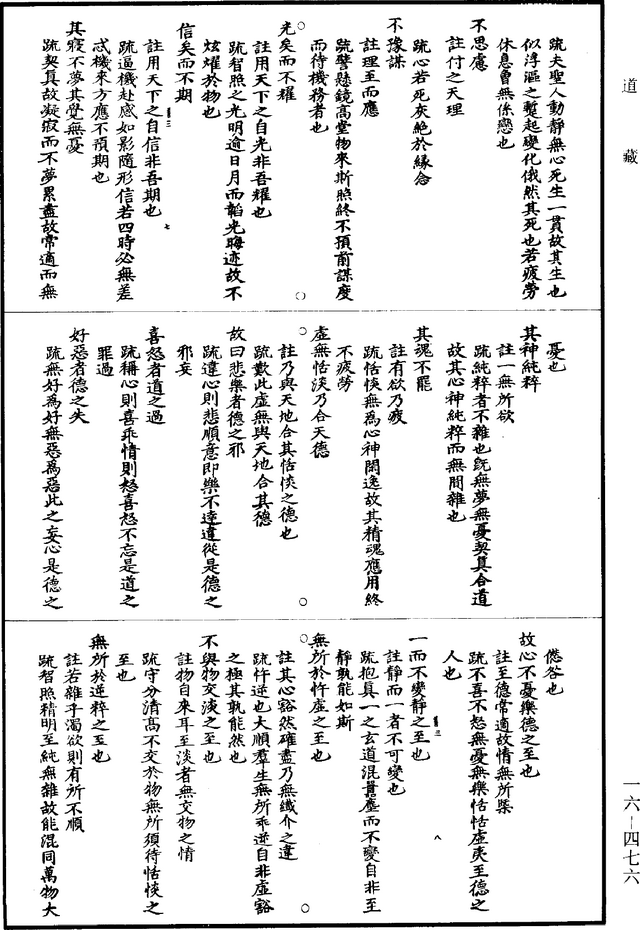 道藏
疏夫聖人動靜無心死生一貫故其生也
似浮漚之蹔起變化俄然其死也若疲勞
休息曾無係戀也
不思慮
註付之天理
疏心若死灰絶於緣念
不豫謀
註理至而應
疏譬懸鏡高堂物來斯照終不預前謀度
而待機務者也
光矣而不耀
註用天下之自光非吾耀也
疏智照之光明逾日月而韜光晦迹故不
炫燿於物也
信矣而不期
註用天下之自信非吾期也
疏逗機赴感如影隨形信若四時必無差
忒機來方應不預期也
其寢不夢其覺無憂
疏契真故凝寂而不夢累盡故常適而無
憂也
其神純粹
註一無所欲
疏純粹者不雜也既無夢無憂契真合道
故其心神純粹而無間雜也
其魂不罷
註有欲乃疲
疏恬惔無為心神閑逸故其精魂應用終
不疲勞
虛無恬淡乃合天德
註乃與天地合其恬惔之德也
疏歎此虛無與天地合其德
故曰悲樂者德之邪
疏違心則悲順意即樂不達違從是德之
邪妄
喜怒者道之過
疏稱心則喜乖情則怒喜怒不忘是道之
罪過
好惡者德之失
疏無好為好無惡為惡此之妄心是德之
僁咎也
故心不憂樂德之至也
註至德常適故情無所槩
疏不喜不怒無憂無樂恬恬虛夷至德之
人也
一而不變靜之至也
註靜而一者不可變也
疏抱真一之玄道混囂塵而不變自非至
靜孰能如斯
無所於忤虛之至也
註其心豁然確盡乃無纖介之違
疏忤逆也大順羣生無所乖逆自非虛豁
之極其孰能然也
不與物交淡之至也
註物自來耳至淡者無交物之情
疏守分清高不交於物無所須待恬惔之
至也
無所於逆粹之至也
註若雜乎濁欲則有所不順
疏智照精明至純無雜故能混同萬物大
一六—四七六